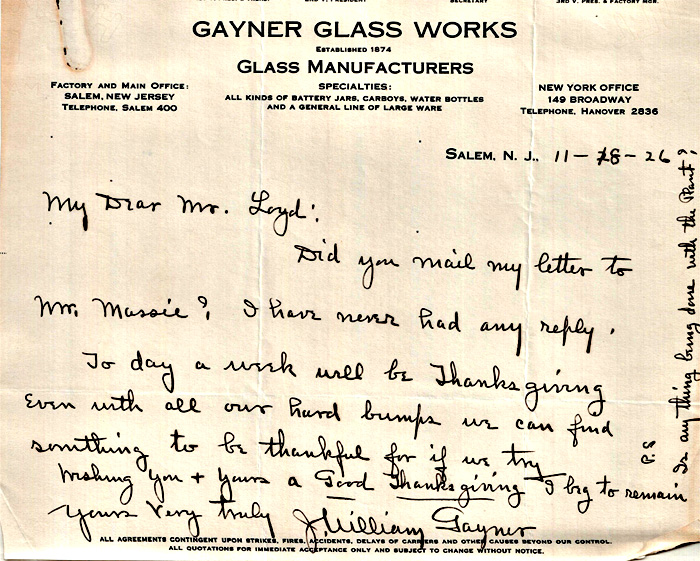 GAYNER GLASS WORKS
ESTABLISHED 1874
GLASS MANUFACTURERS
FACTORY AND MAIN OFFICE:
SALEM, NEW JERSEY
TELEPHONE, SALEM 400
SPECIALTIES:
ALL KINDS OF BATTERY JARS, CARBOYS, WATER BOTTLES
AND A GENERAL LINE OF LARGE WARE
NEW YORK OFFICE
149 BROADWAY
TELEPHONE, HANOVER 2836
SALEM, N. J., 11-18-26
My Dear Mr. Loyd:
Did you mail my letter to
Mr. Massie? I have never had any reply.
To day a week will be Thanksgiving
Even with all our hard bumps we can find
somthing to be thankful for if we try
Wishing you + yours a Good Thanksgiving I beg to remain
yours Very truly J. William Gayner
P.S Is anything being done with the Plant?
ALL AGREEMENTS CONTINGENT UPON STRIKES, FIRES, ACCIDENTS, DELAYS OF CARRIERS AND OTHER CAUSES BEYOND OUR CONTROL.
ALL QUOTATIONS FOR IMMEDIATE ACCEPTANCE ONLY AND SUBJECT TO CHANGE WITHOUT NOTICE.